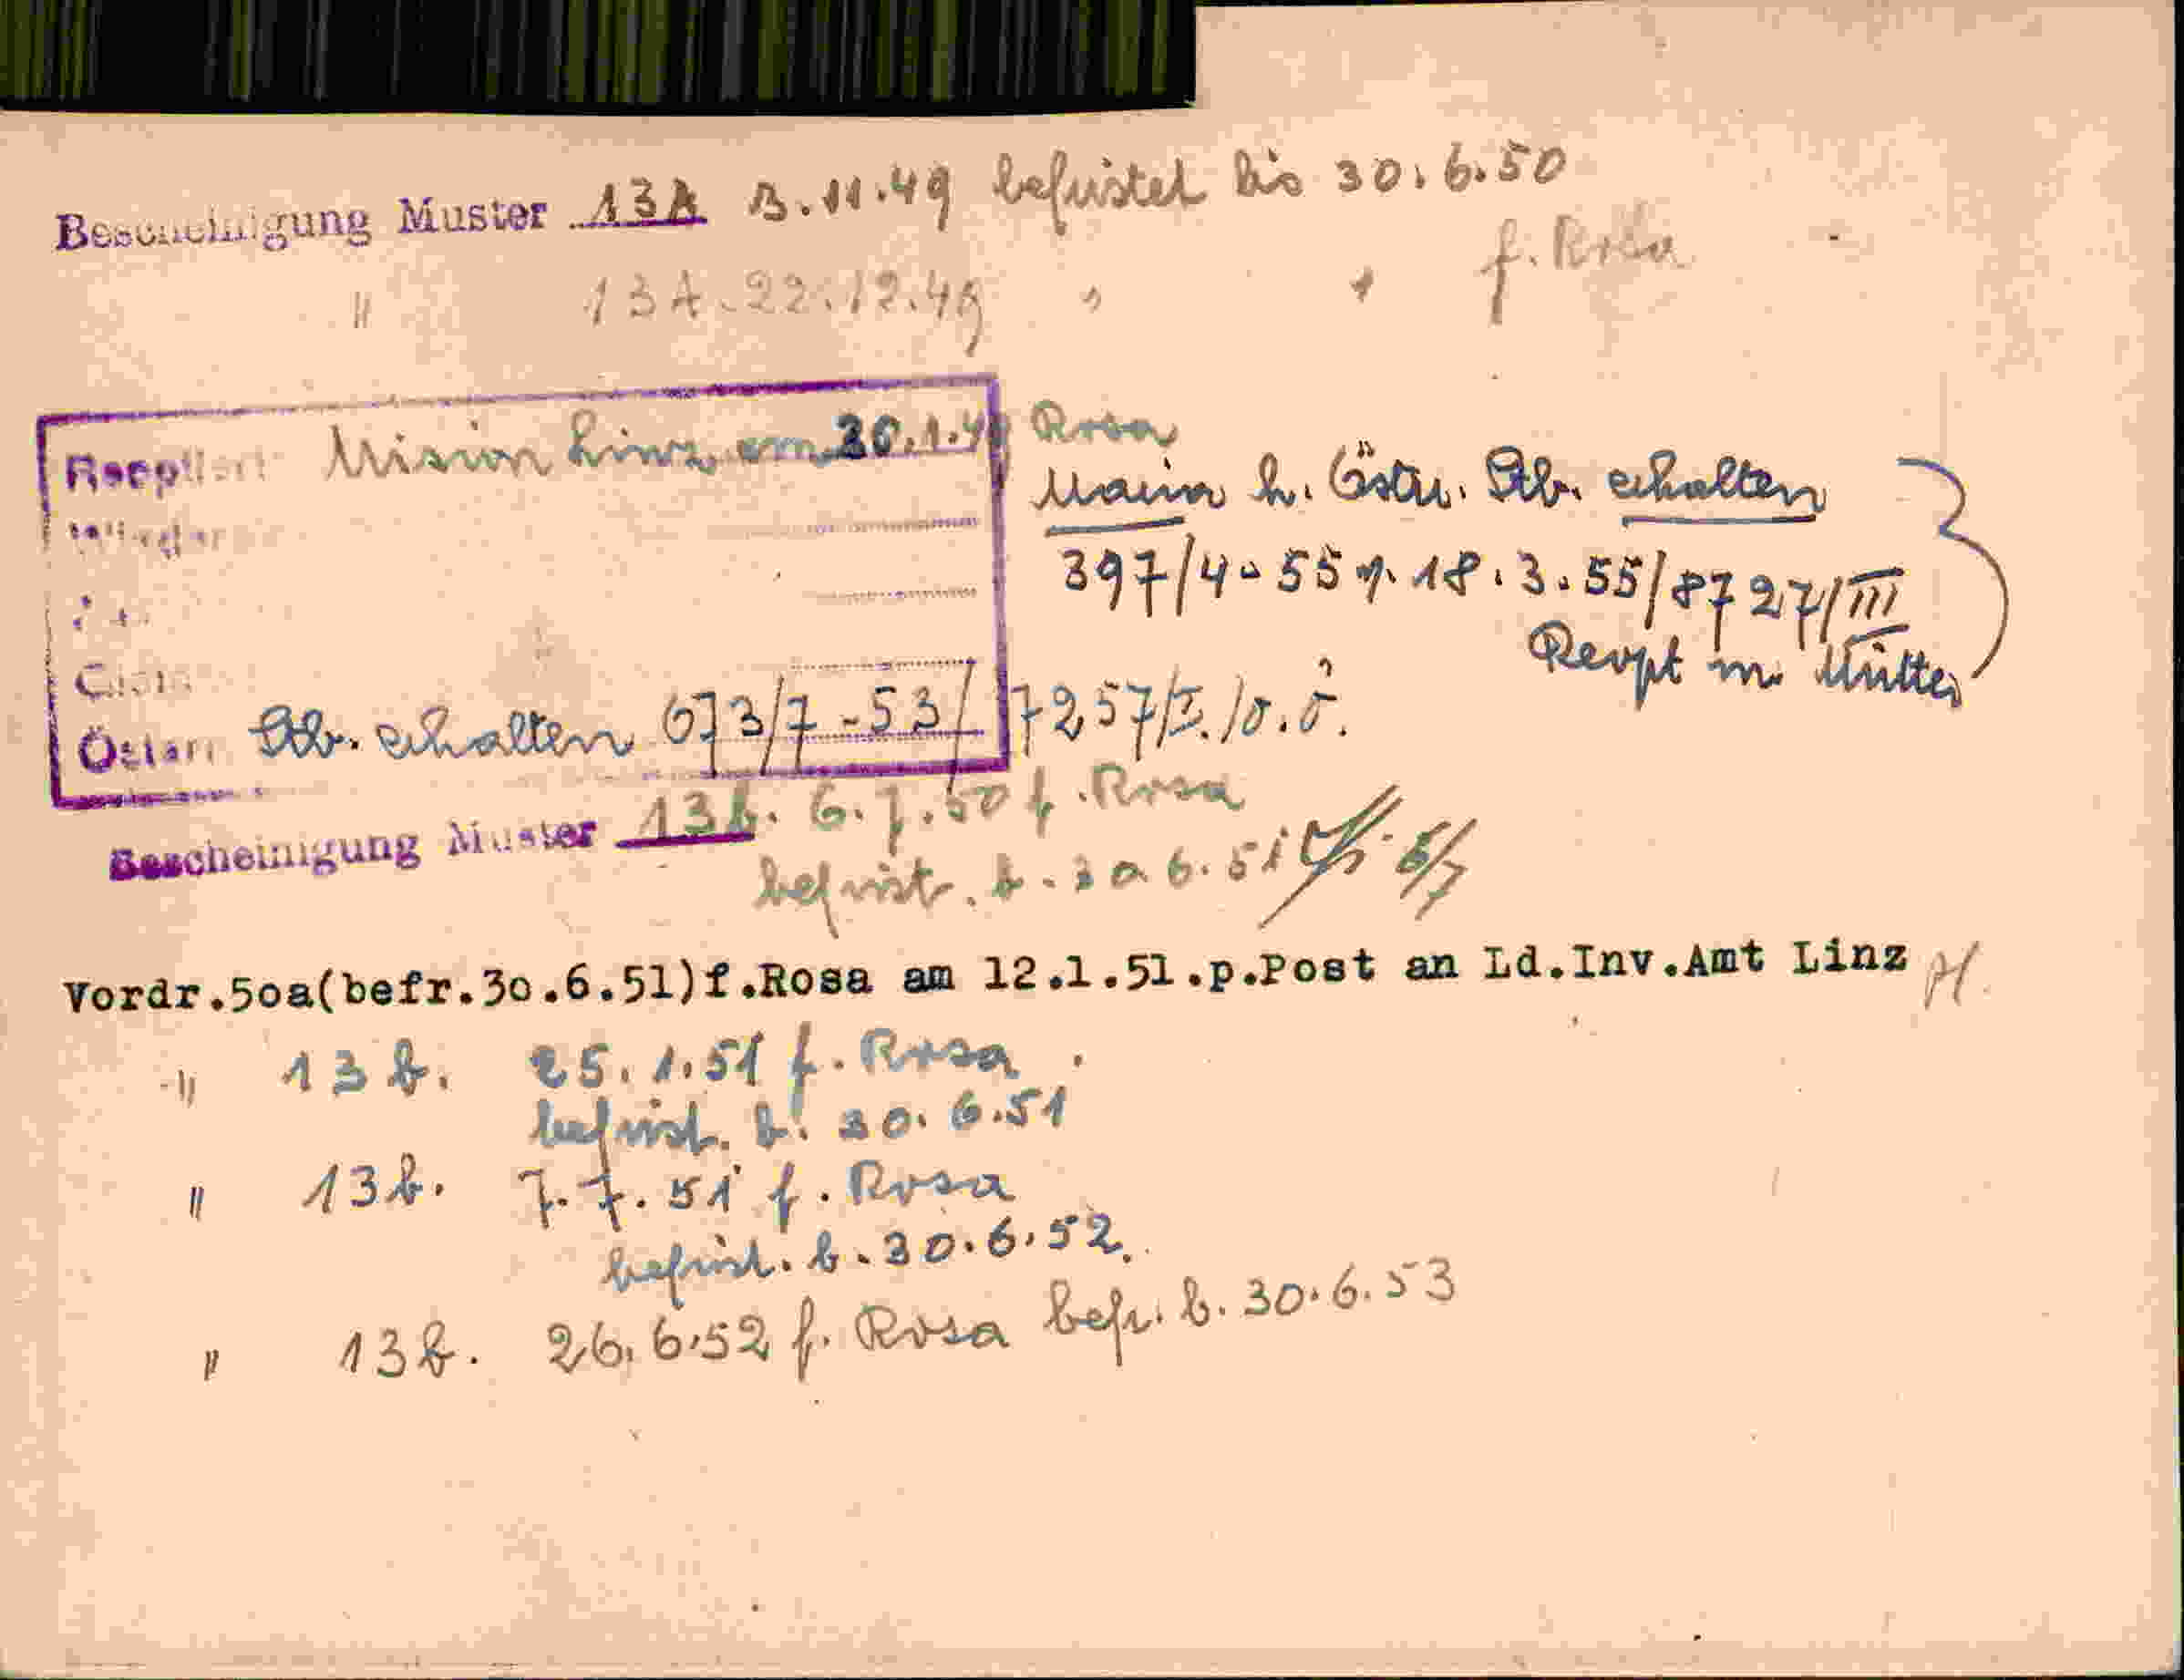 Bescheinigung Muster 13A 3.11.49 befristet bis 30.6.50
" 13A. 22.12.49 " " f. Rosa
Reoptiert Mision Linz am 26.1.49 Rosa
Maria h. Östr. Stb. erhalten
397/4-55 v. 18.3.55/8727/III
Reopt m. Mutter
Österr. Stb. erhalten 673/7-53/7257/I./o.ö.
Bescheinigung Muster 13b. 6.7.50 f. Rosa
befrist. b. 30.6.51 5/7
Vordr.5oa(befr.3o.6.51)f.Rosa am 12.1.51.p.Post an Ld.Inv.Amt Linz
-"- 13b. 25.1.51 f. Rosa
befrist. b. 30.6.51
" 13b. 7.7.51 f. Rosa
befrist. b. 30.6.52.
" 13b. 26.6.52 f. Rosa befr. b. 30.6.53